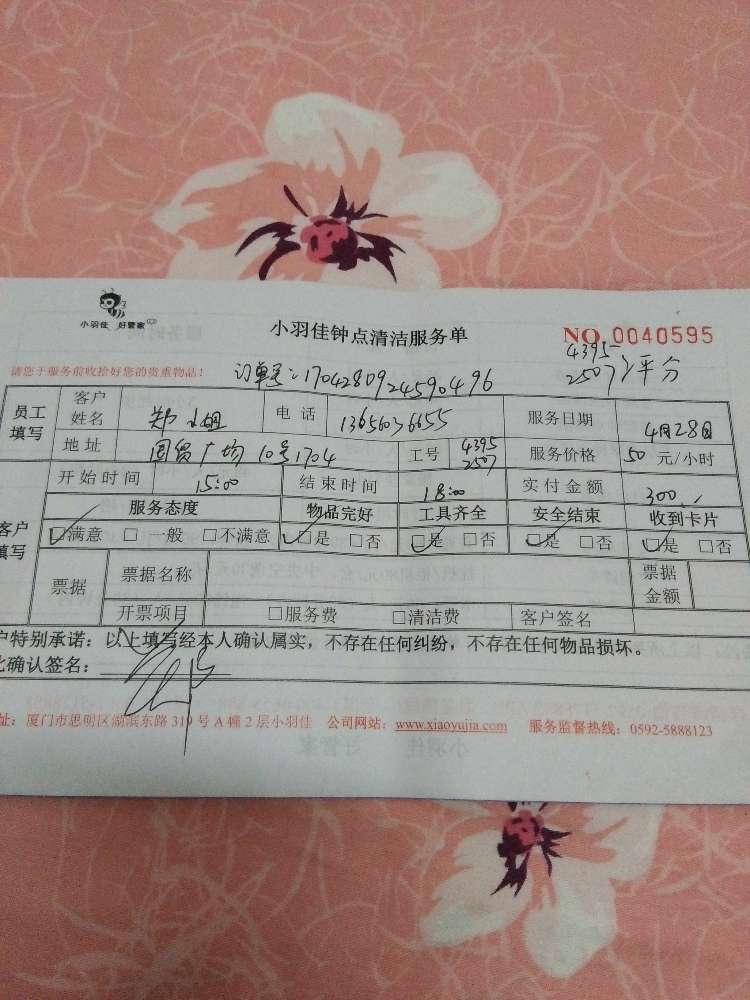 小羽佳 好管家
小羽佳钟点清洁服务单
NO. 0040595
请您于服务前收拾好您的贵重物品!
订单号:1704280924590496
4395
2507 }平分
员工填写 客户姓名 郑小姐 电话 13656036655 服务日期 4月28日
地址 国贸广场10号1704 工号 4395 2507 服务价格 50 元/小时
开始时间 15:00 结束时间 18:00 实付金额 300
客户填写 服务态度 物品完好 工具齐全 安全结束 收到卡片
☑满意 □一般 □不满意 ☑是 □否 ☑是 □否 ☑是 □否 ☑是 □否
票据 票据名称 票据金额
开票项目 □服务费 □清洁费 客户签名
户特别承诺:以上填写经本人确认属实,不存在任何纠纷,不存在任何物品损坏。
此确认签名:
址:厦门市思明区湖滨东路319号A幢2层小羽佳 公司网站:www.xiaoyujia.com 服务监督热线:0592-5888123